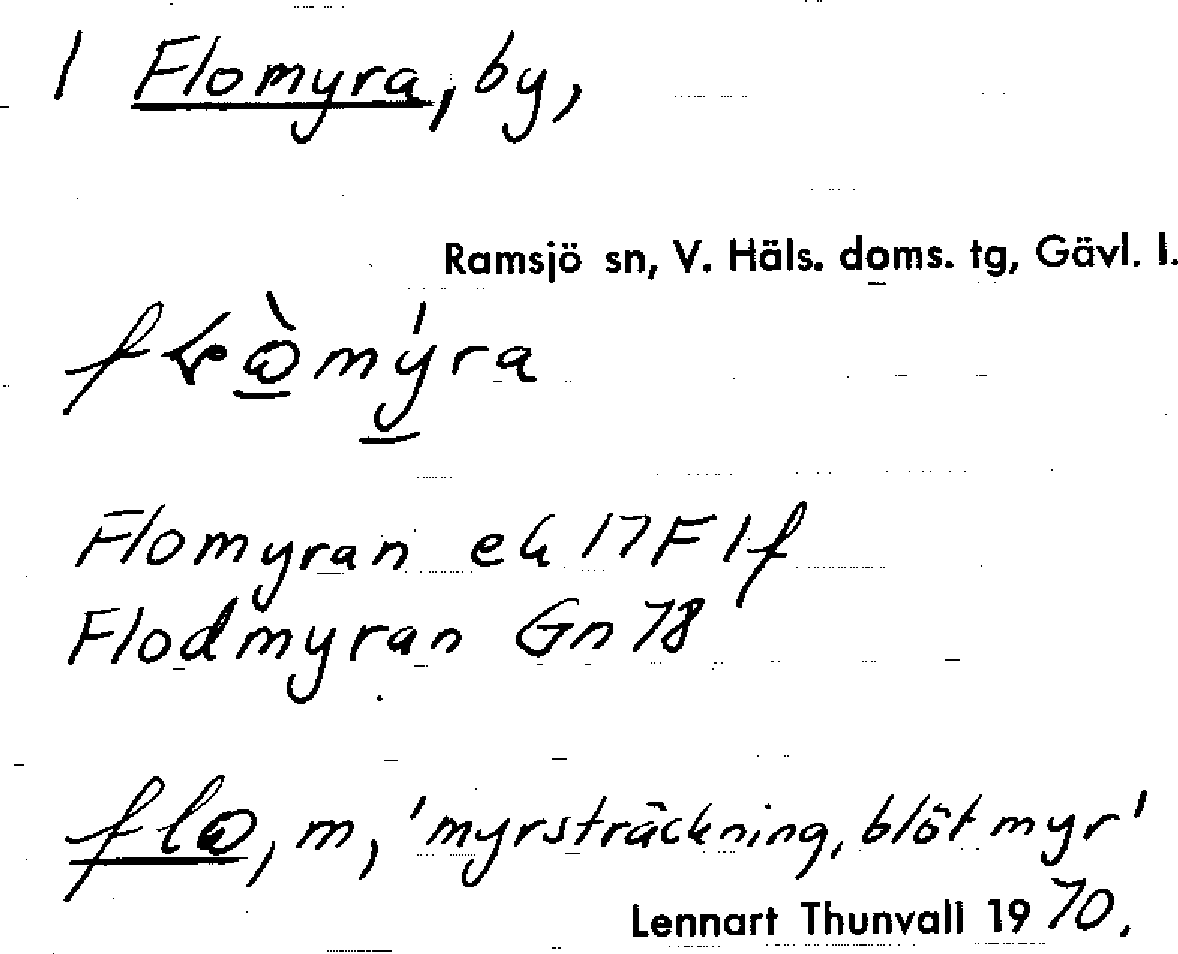 1 Flomyra, by,
Ramsjö sn, V. Häls. doms. tg, Gävl. l.
Flomyran ek 17F1f
Flodmyran Gn 78
flo, m, 'myrsträckning, blöt myr'
Lennart Thunvall 1970.